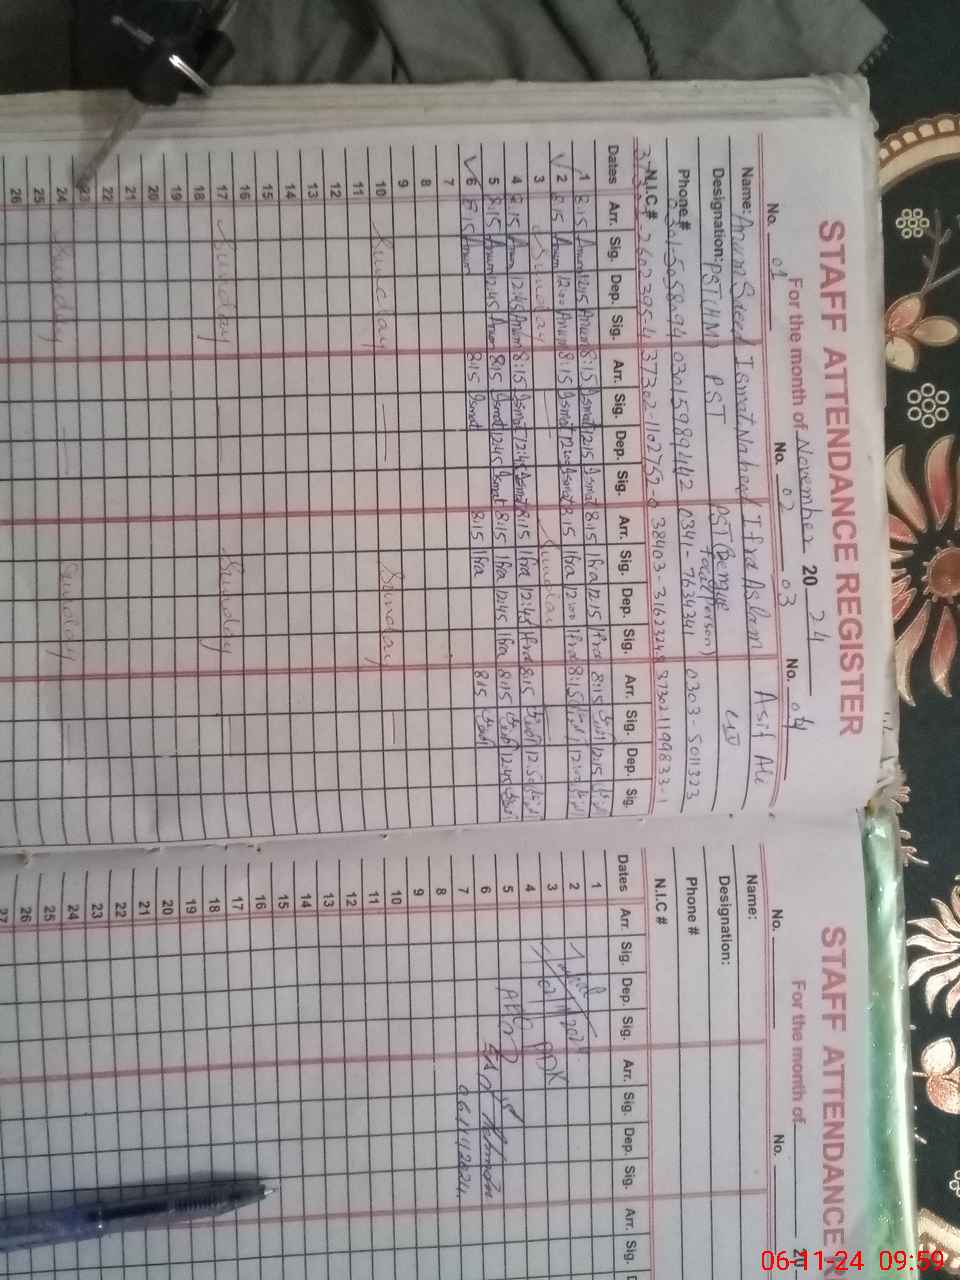 STAFF ATTENDANCE REGISTER
For the month of November 20 24
No. 01 No. 02 03 No. 04
Name: Anum Saeed Ismat Naheed Ifra Aslam Asif Ali
Designation: PST(HM) PST PST (Dengue Focal Person)
Phone # 03015989442 0341-7634341 0303-5011323
N.I.C # 37302-1102752-0
Dates Arr. Sig. Dep. Sig. Arr. Sig. Dep. Sig. Arr. Sig. Dep. Sig. Arr. Sig. Dep. Sig.
1 8:15 Anum 12:15 Anum 8:15 Ismat 12:15 Ismat 8:15 Ifra 12:15 Ifra 8:15 12:15
2 8:15 Anum 12:00 Anum 8:15 Ismat 12:00 Ismat 8:15 Ifra 12:00 Ifra 8:15 12:00
3 Sunday Sunday
4 8:15 Anum 12:45 Anum 8:15 Ismat 12:45 Ismat 8:15 Ifra 12:45 Ifra 8:15
5 8:15 Anum 12:45 Anum 8:15 Ismat 12:45 Ismat 8:15 Ifra 12:45 Ifra 8:15 12:45
6 8:15 Anum 8:15 Ismat 8:15 Ifra 8:15
7
8
9
10 Sunday Sunday
11
12
13
14
15
16
17 Sunday Sunday
18
19
20
21
22
23
24 Sunday Sunday
25
26
STAFF ATTENDANCE R
For the month of 20
No. No.
Name:
Designation:
Phone #
N.I.C #
Dates Arr. Sig. Dep. Sig. Arr. Sig. Dep. Sig. Arr. Sig.
1
2
3
4
5
6
7
8
9
10
11
12
13
14
15
16
17
18
19
20
21
22
23
24
25
26
27
06-11-24 09:59